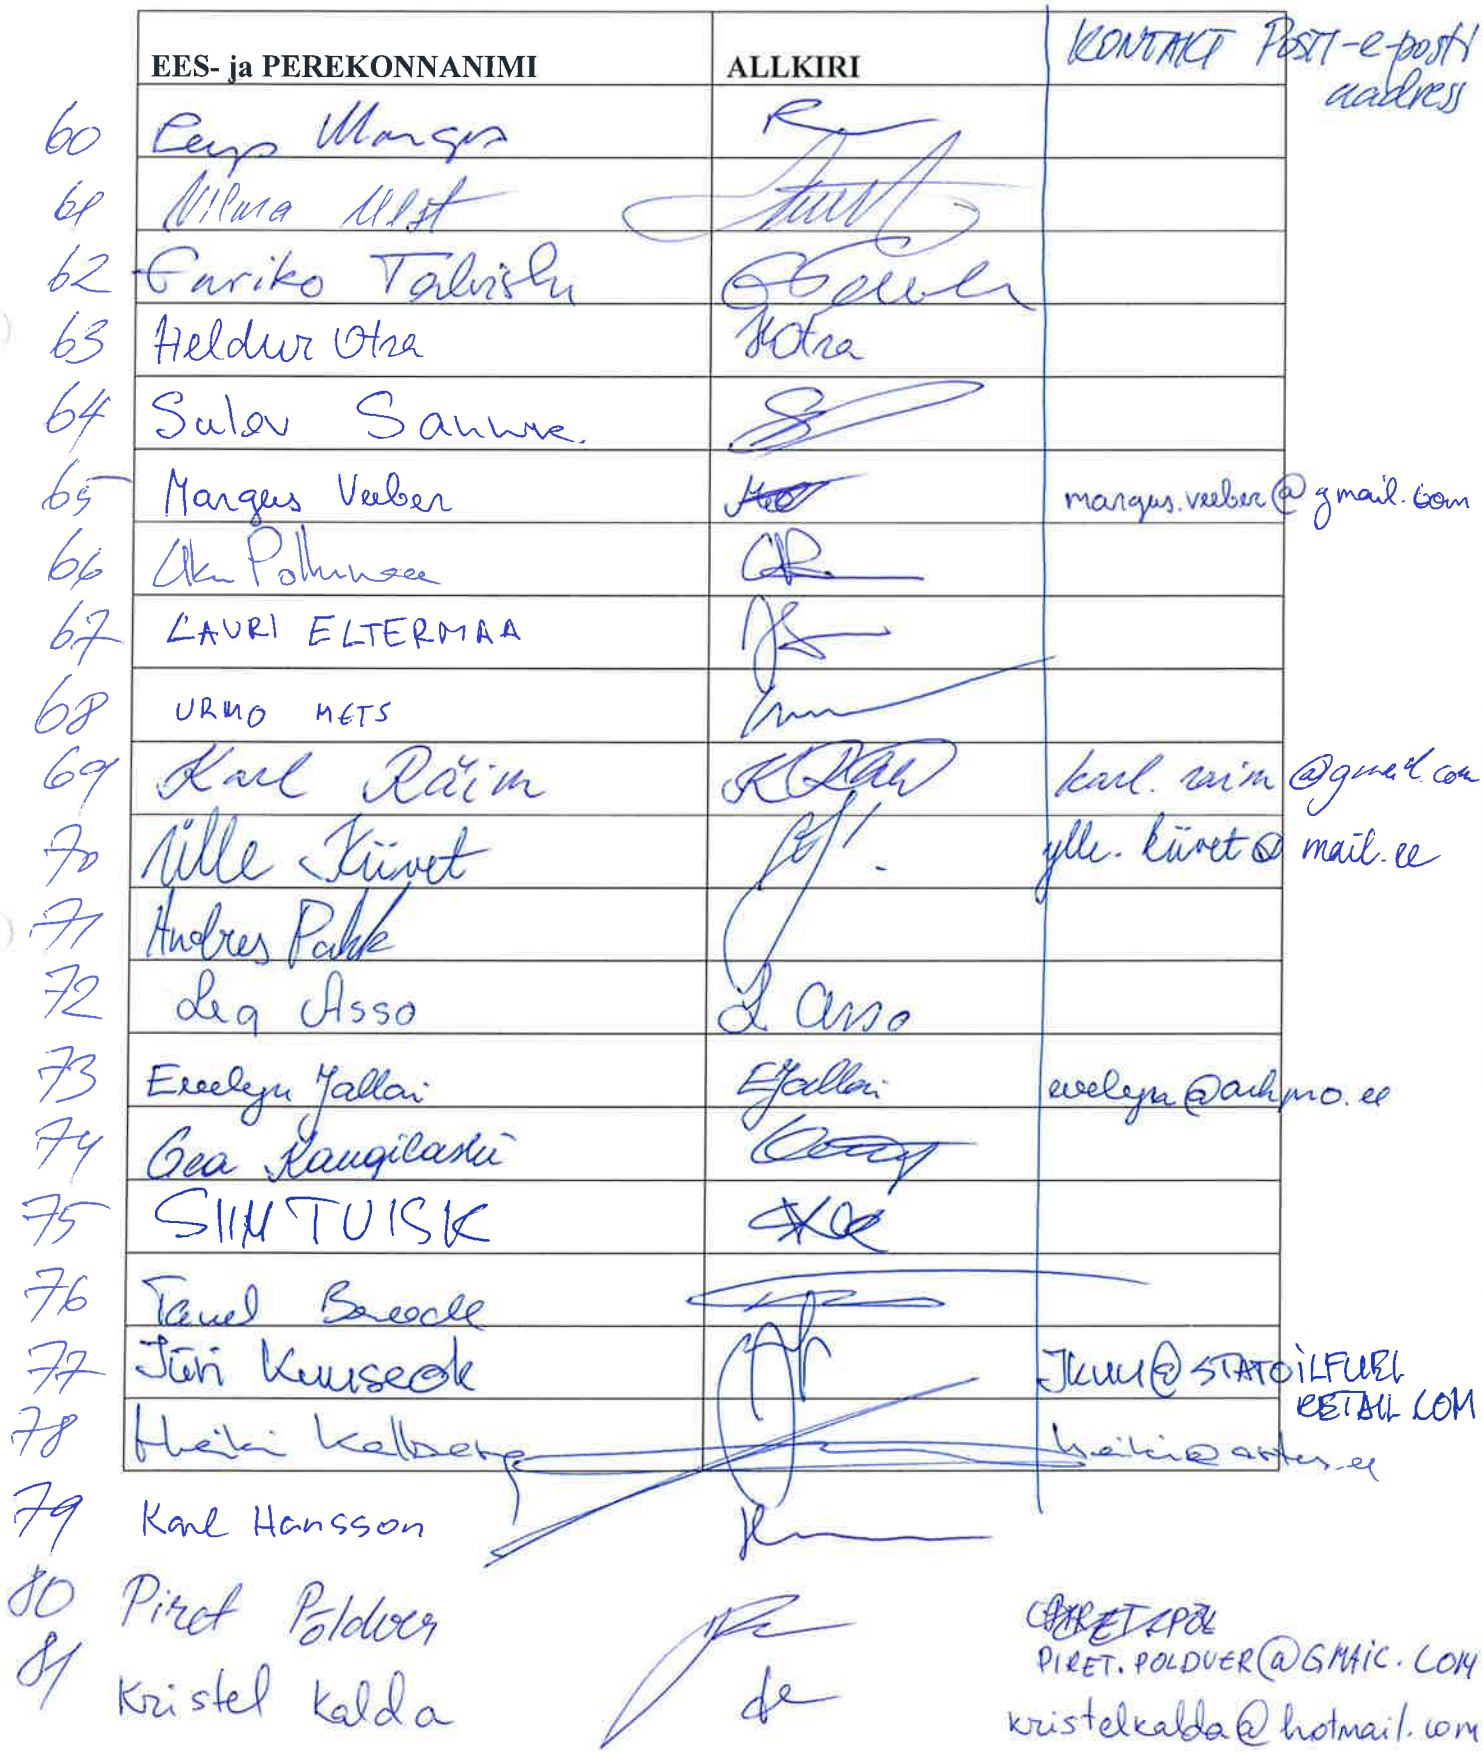 EES- ja PEREKONNANIMI ALLKIRI KONTAKT POSTI-e-posti
aadress
60 Margus
61 Vilma Ulst
62 Enriko Talvistu
63 Heldur Otsa HOtsa
64 Sulev
65 Margus Veeber margus.veeber@gmail.com
66
67 LAURI ELTERMAA
68 URMO METS
69 Karl Räim karl.raim@gmail.com
70 Ülle Kiivet ylle.kiivet@mail.ee
71 Andres Pahk
72 Lea Asso L Asso
73 Evelyn Jallai EJallai evelyn@archpro.ee
74 Gea Kangilaski
75 SIIM TUISK
76 Tanel
77 Jüri Kuuseok JKUU@STATOILFUEL
RETAIL.COM
78 Heiki Kalberg
79 Karl Hansson
80 Piret Põldver
PIRET.POLDVER@GMAIL.COM
81 Kristel Kalda kristelkalda@hotmail.com